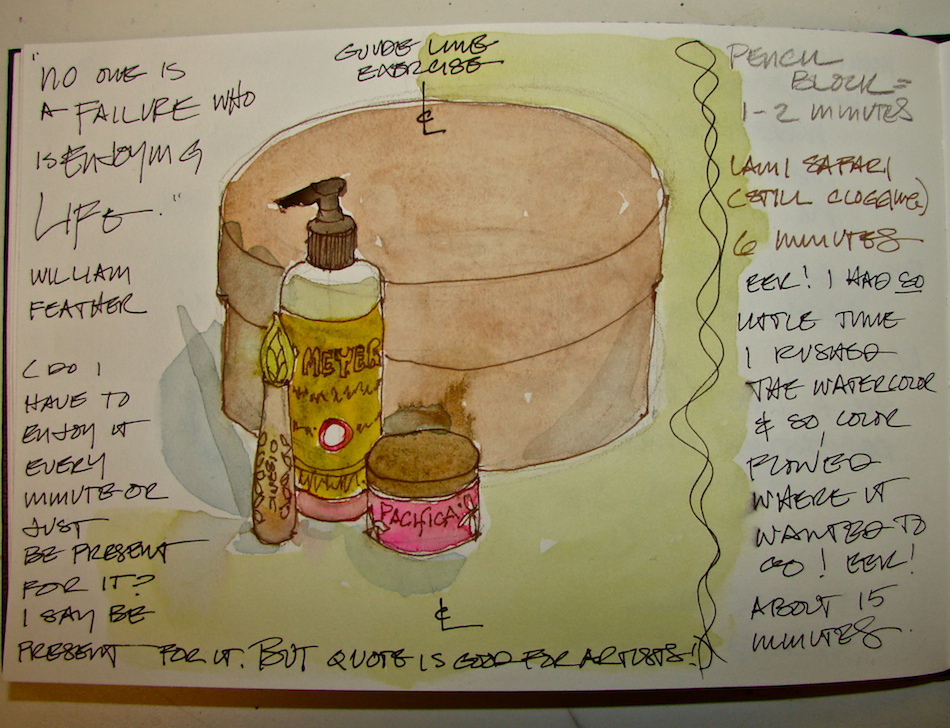 "NO ONE IS
A FAILURE WHO
IS ENJOYING
LIFE."
WILLIAM
FEATHER
(DO I
HAVE TO
ENJOY IT
EVERY
MINUTE OR
JUST
BE PRESENT
FOR IT?
I SAY BE
PRESENT FOR IT. BUT QUOTE IS GOOD FOR ARTISTS!)
GUIDE LINE
EXERCISE
CL
MEYER
PACIFICA
CL
PENCIL
BLOCK =
1-2 MINUTES
LAMI SAFARI
(STILL CLOGGING)
6 MINUTES
EEK! I HAD SO
LITTLE TIME
I RUSHED
THE WATERCOLOR
& SO, COLOR
FLOWED
WHERE IT
WANTED TO
GO! EEK!
ABOUT 15
MINUTES.